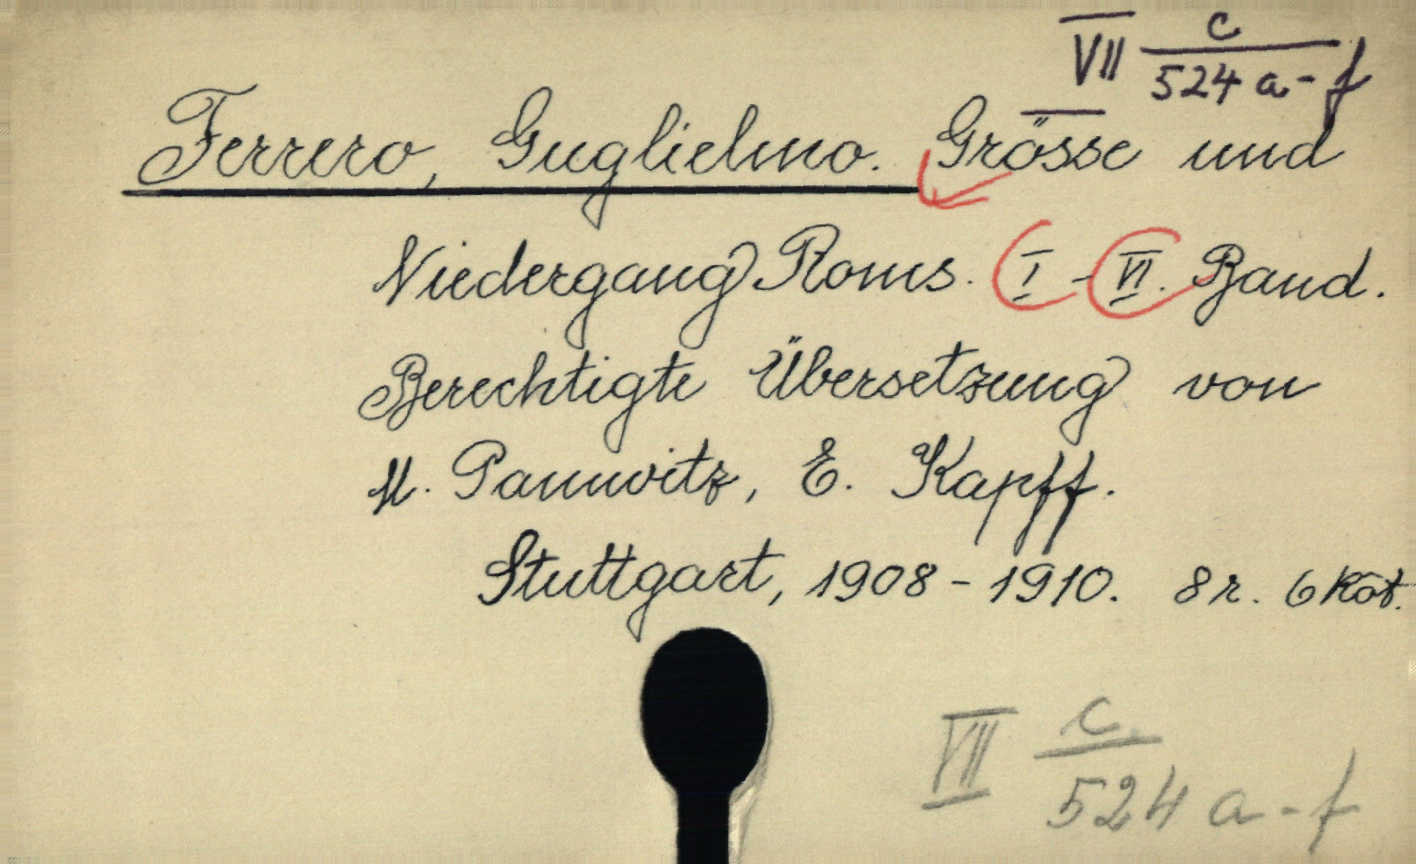 VII c/524 a-f
Ferrero, Guglielmo. Grösse und
Niedergang Roms. I - VI. Band.
Berechtigte Übersetzung von
M. Pannwitz, E. Kapff.
Stuttgart, 1908 - 1910. 8r. 6 köt.
VII c./524 a-f